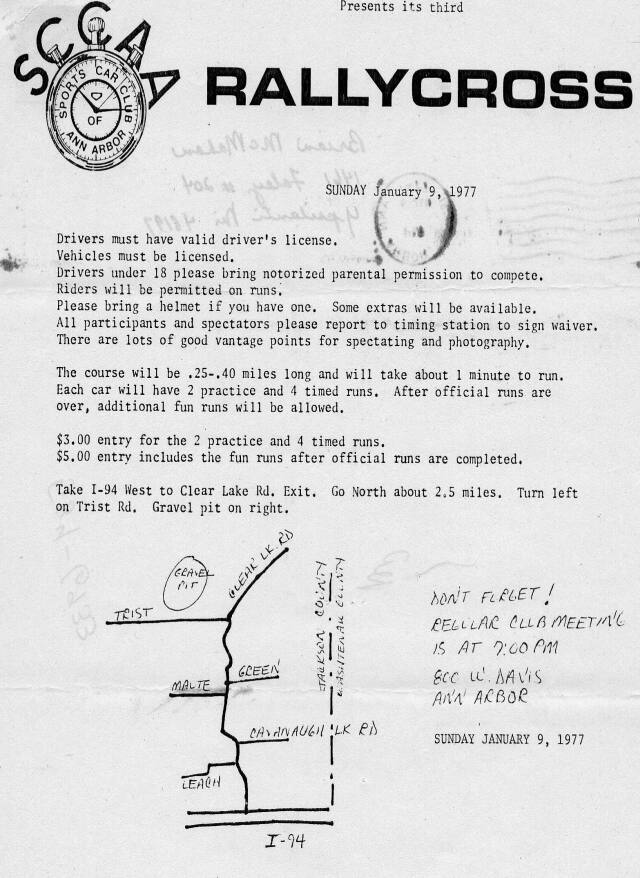 Presents its third
SCCAA
SPORTS CAR CLUB
OF
ANN ARBOR
RALLYCROSS
SUNDAY January 9, 1977
Drivers must have valid driver's license.
Vehicles must be licensed.
Drivers under 18 please bring notorized parental permission to compete.
Riders will be permitted on runs.
Please bring a helmet if you have one. Some extras will be available.
All participants and spectators please report to timing station to sign waiver.
There are lots of good vantage points for spectating and photography.
The course will be .25-.40 miles long and will take about 1 minute to run.
Each car will have 2 practice and 4 timed runs. After official runs are
over, additional fun runs will be allowed.
$3.00 entry for the 2 practice and 4 timed runs.
$5.00 entry includes the fun runs after official runs are completed.
Take I-94 West to Clear Lake Rd. Exit. Go North about 2.5 miles. Turn left
on Trist Rd. Gravel pit on right.
GRAVEL
PIT
CLEAR LK. RD
TRIST
JACKSON COUNTY
WASHTENAW COUNTY
GREEN
MALTE
CAVANAUGH LK RD
LEACH
I-94
DON'T FORGET!
REGULAR CLUB MEETING
IS AT 7:00 PM
800 W. DAVIS
ANN ARBOR
SUNDAY JANUARY 9, 1977